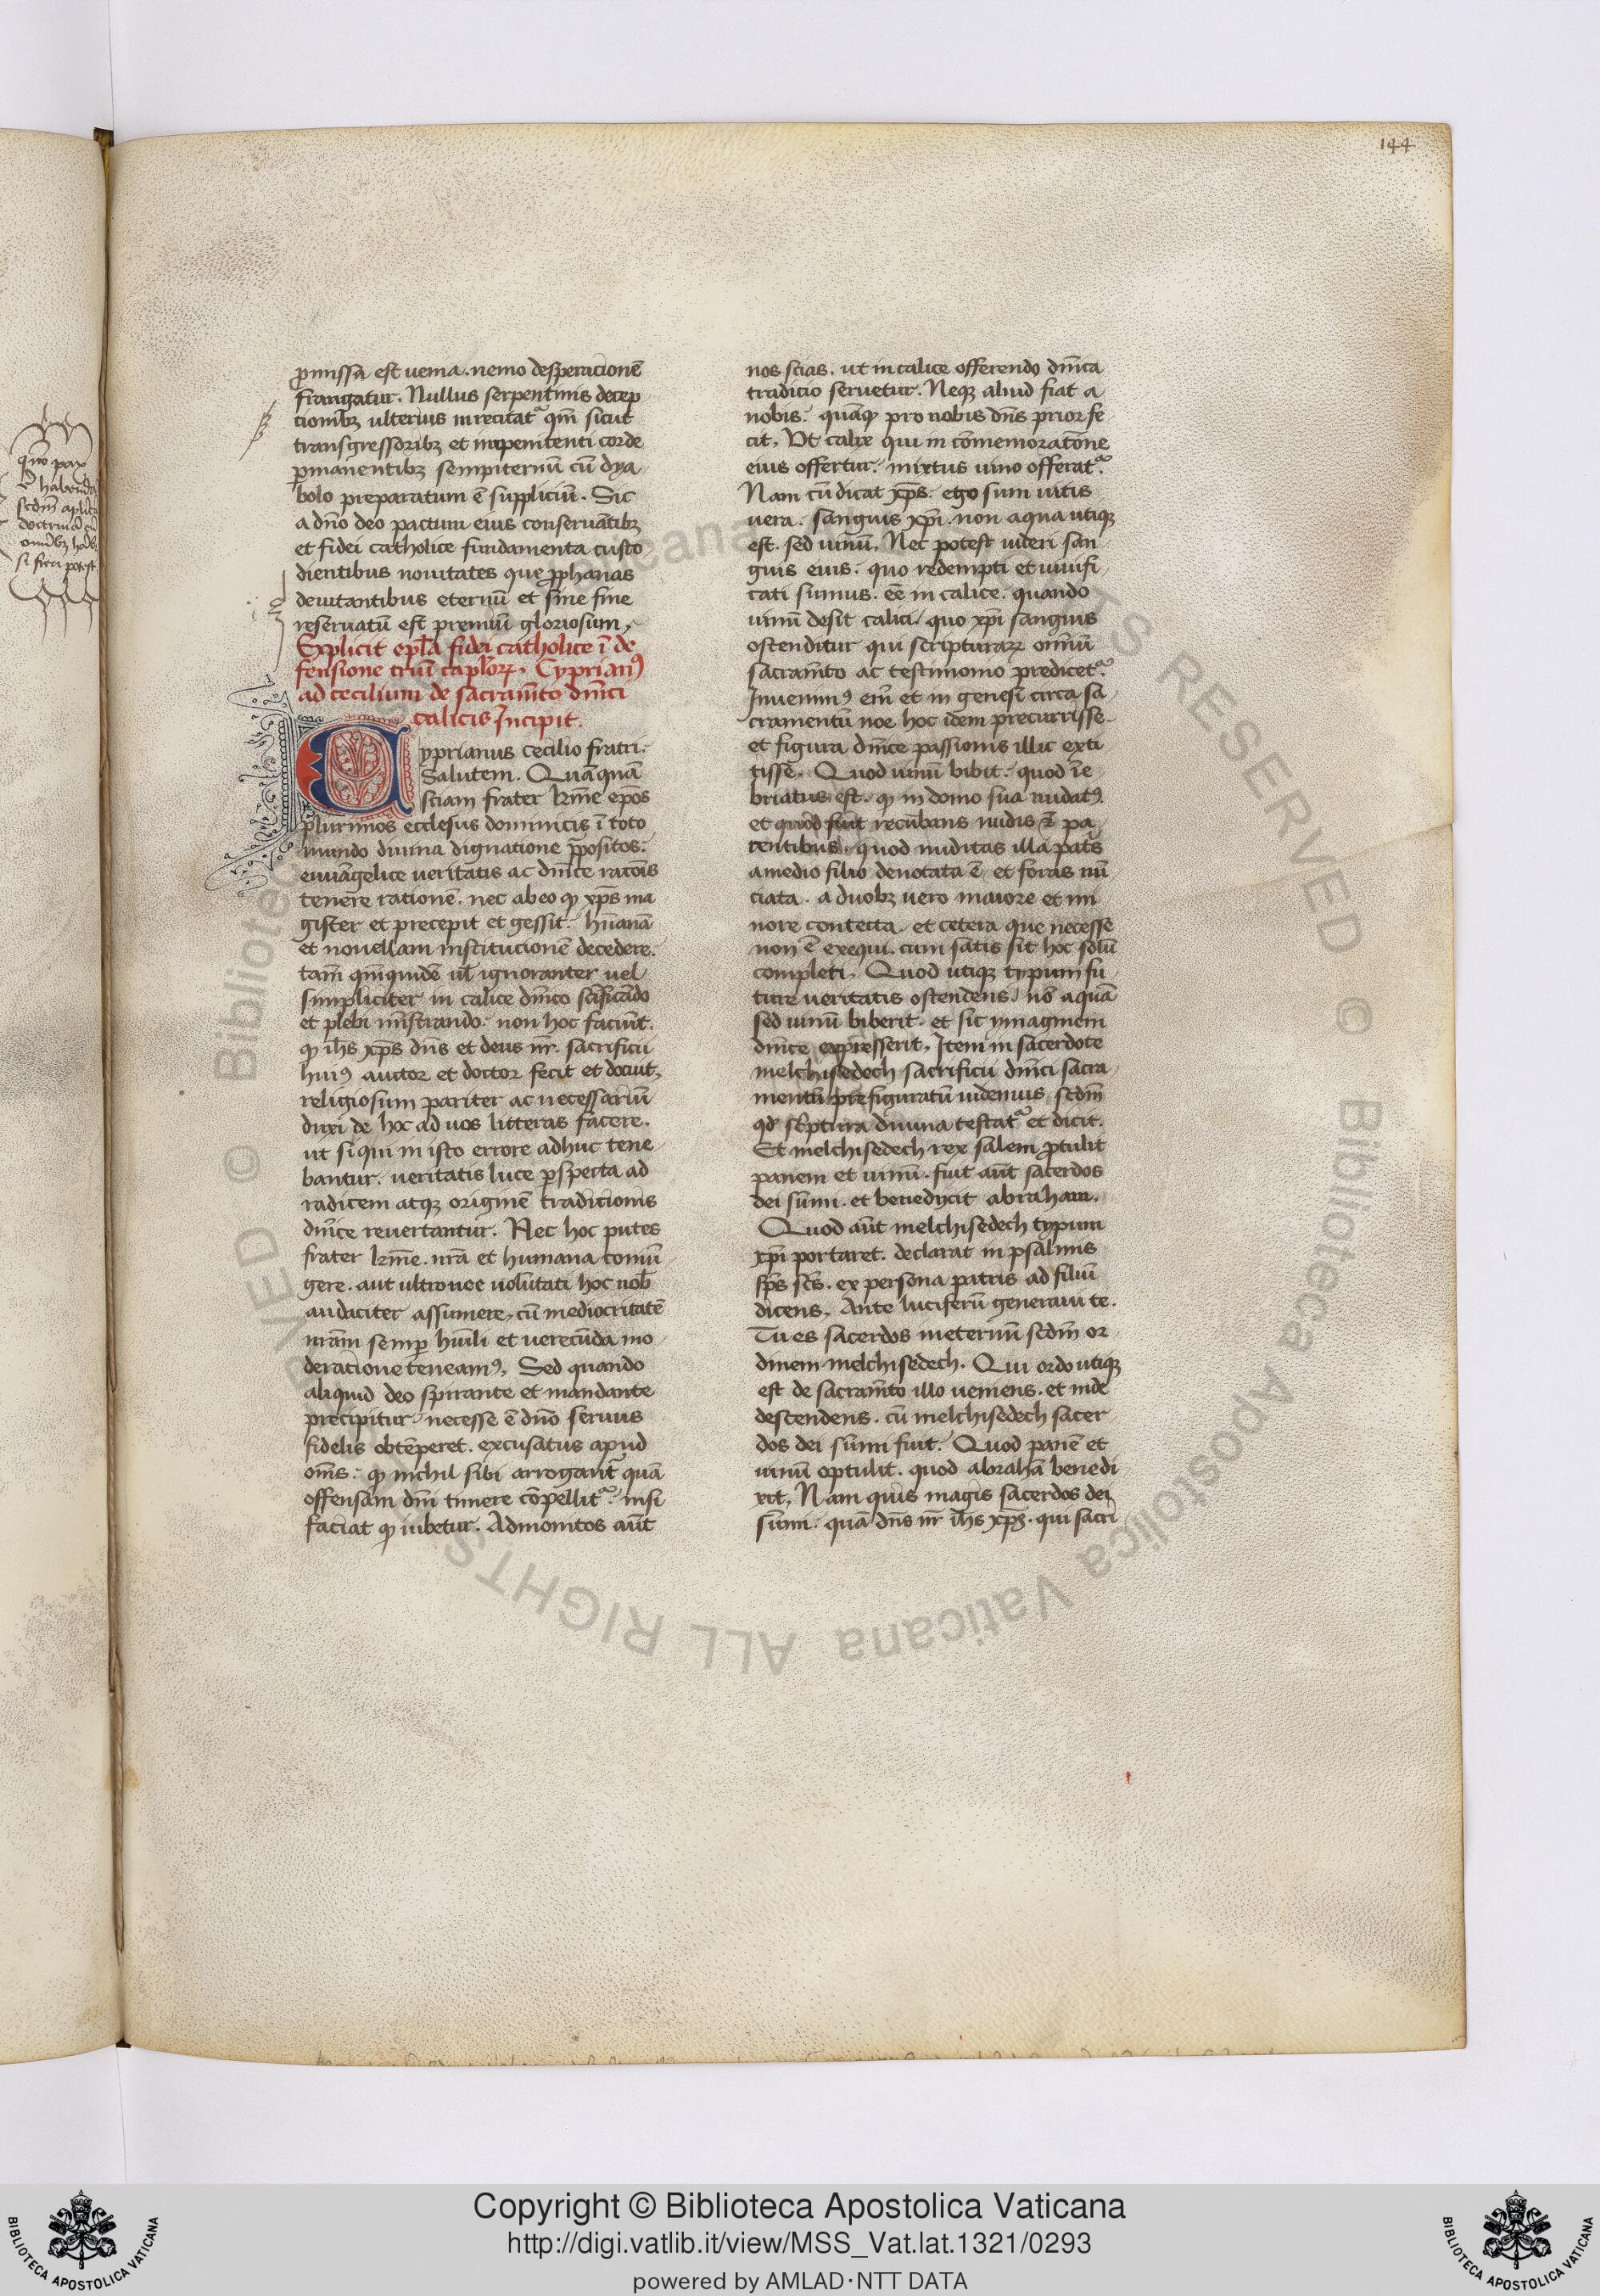 144
qūo pax
habenda
scdm̄ aplicā
doctrinā cū
omībꝫ hoībꝫ
si fieri potest
ꝓmissa est uenia. nemo desperacionē
frangatur. Nullus serpentinis decep
cionibꝫ ulterius inrecitatᷣ qm̄ sicut
transgressoribꝫ et inpenitenti corde
ꝑmanentibꝫ sempiternū cū dya
bolo preparatum ē suppliciū. Sic
a dn̄o deo pactum eius conseruātibꝫ
et fidei catholice fundamenta custo
dientibus nouitates que ꝓphanas
deuitantibus eternū et sine fine
reseruatū est premiū gloriosum.
Explicit ep̄la fidei catholice ī de
fensione triū capl̄oꝝ. Cyprianꝰ
ad cecilium de sacram̄to dn̄ici
calicis Incipit.
Cyprianus cecilio fratri.
Salutem. Quāquā
sciam frater kr̄me ep̄os
plurimos ecclesiis dominicis ī toto
mundo diuina dignatione ꝓpositos.
euuāgelice ueritatis ac dn̄ice rac̄ois
tenere rationē. nec ab eo qꝫ xp̄s ma
gister et precepit et gessit. hūanā
et nouellam institucionē decedere.
tam̄ qm̄quidē ul̄ ignoranter uel
simpliciter in calice dn̄ico sc̄ificādo
et plebi mīstrando. non hoc faciūt.
qꝫ ih̄s xp̄s dn̄s et deus nr̄. sacrificii
huiꝰ auctor et doctor fecit et docuit,
religiosum pariter ac necessariū
duxi de hoc ad uos litteras facere.
ut si qui in isto errore adhuc tene
bantur. ueritatis luce ꝑspecta ad
radicem atqꝫ originē tradicionis
dn̄ice reuertantur. Nec hoc putes
frater kr̄me. nr̄a et humana comū
gere. aut ultronee uolūtati hoc nob̄
audaciter assumere, cū mediocritatē
nr̄am semꝑ hūili et uerecūda mo
deracione teneamꝰ. Sed quando
aliquid deo spirante et mandante
precipitur. necesse ē dn̄o seruus
fidelis obtēperet. excusatus apud
om̄s. qꝫ nichil sibi arrogantᷣ quā
offensam dn̄i timere cōpellitᷣ. nisi
faciat qꝫ iubetur. Admonitos aūt
nos scias. ut in calice offerendo dn̄ica
tradicio seruetur. Neqꝫ aliud fiat a
nobis. quāqꝫ pro nobis dn̄s prior fe
cit. Ut calix qui in cōmemoratōne
eius offertur. mixtus uino offeratᷣ.
Nam cū dicat xp̄s. ego sum uitis
uera. sanguis xp̄i. non aqua utiqꝫ
est. sed uinū. Nec potest uideri san
guis eius. quo redempti et uiuifi
cati sumus. eē in calice. quando
uinū desit calici. quo xp̄i sanguis
ostenditur qui scripturaꝝ om̄iū
sacram̄to ac testimonio predicetᷣ.
Inuenimꝰ em̄ et in genesi circa sa
cramentū noe hoc idem precurrisse
et figura dn̄ice passionis illic exti
tisse. Quod uinū bibit. quod ine
briatus est. qꝫ in domo sua nudatꝰ.
et quod fuit recūbans nudis ⁊ pa
tentibus. quod nuditas illa pat̄s
a medio filio denotata ē. et foras nū
ciata. a duobꝫ uero maiore et mi
nore contecta. et cetera que necesse
non ē exequi. cum satis sit hoc solū
completi. Quod utiqꝫ typum fu
ture ueritatis ostendens. nō aquā
sed uinū biberit. et sic ymaginem
dn̄ice expresserit. Item in sacerdote
melchisedech sacrificii dn̄ici sacra
mentū prefiguratū uidemus scdm̄
qd̄ sc̄ptura diuina testatᷣ et dicit.
Et melchisedech rex salem ꝓtulit
panem et uinū. fuit aūt sacerdos
dei sūmi. et benedyxit abraham.
Quod aūt melchisedech typum
xp̄i portaret. declarat in psalmis
sp̄s sc̄s. ex persona patris ad filiū
dicens. Ante luciferū generaui te.
Tu es sacerdos ineternū scdm̄ or
dinem melchisedech. Qui ordo utiqꝫ
est de sacram̄to illo ueniens. et inde
descendens. cū melchisedech sacer
dos dei sūmi fuit. Quod panē et
uinū optulit. quod abrahā benedi
xit. Nam quis magis sacerdos dei
sūmi. quā dn̄s nr̄ ih̄s xp̄s. qui sacri
© Biblioteca Apostolica Vaticana ALL RIGHTS RESERVED
Copyright © Biblioteca Apostolica Vaticana
http://digi.vatlib.it/view/MSS_Vat.lat.1321/0293
powered by AMLAD·NTT DATA
BIBLIOTECA APOSTOLICA VATICANA
BIBLIOTECA APOSTOLICA VATICANA